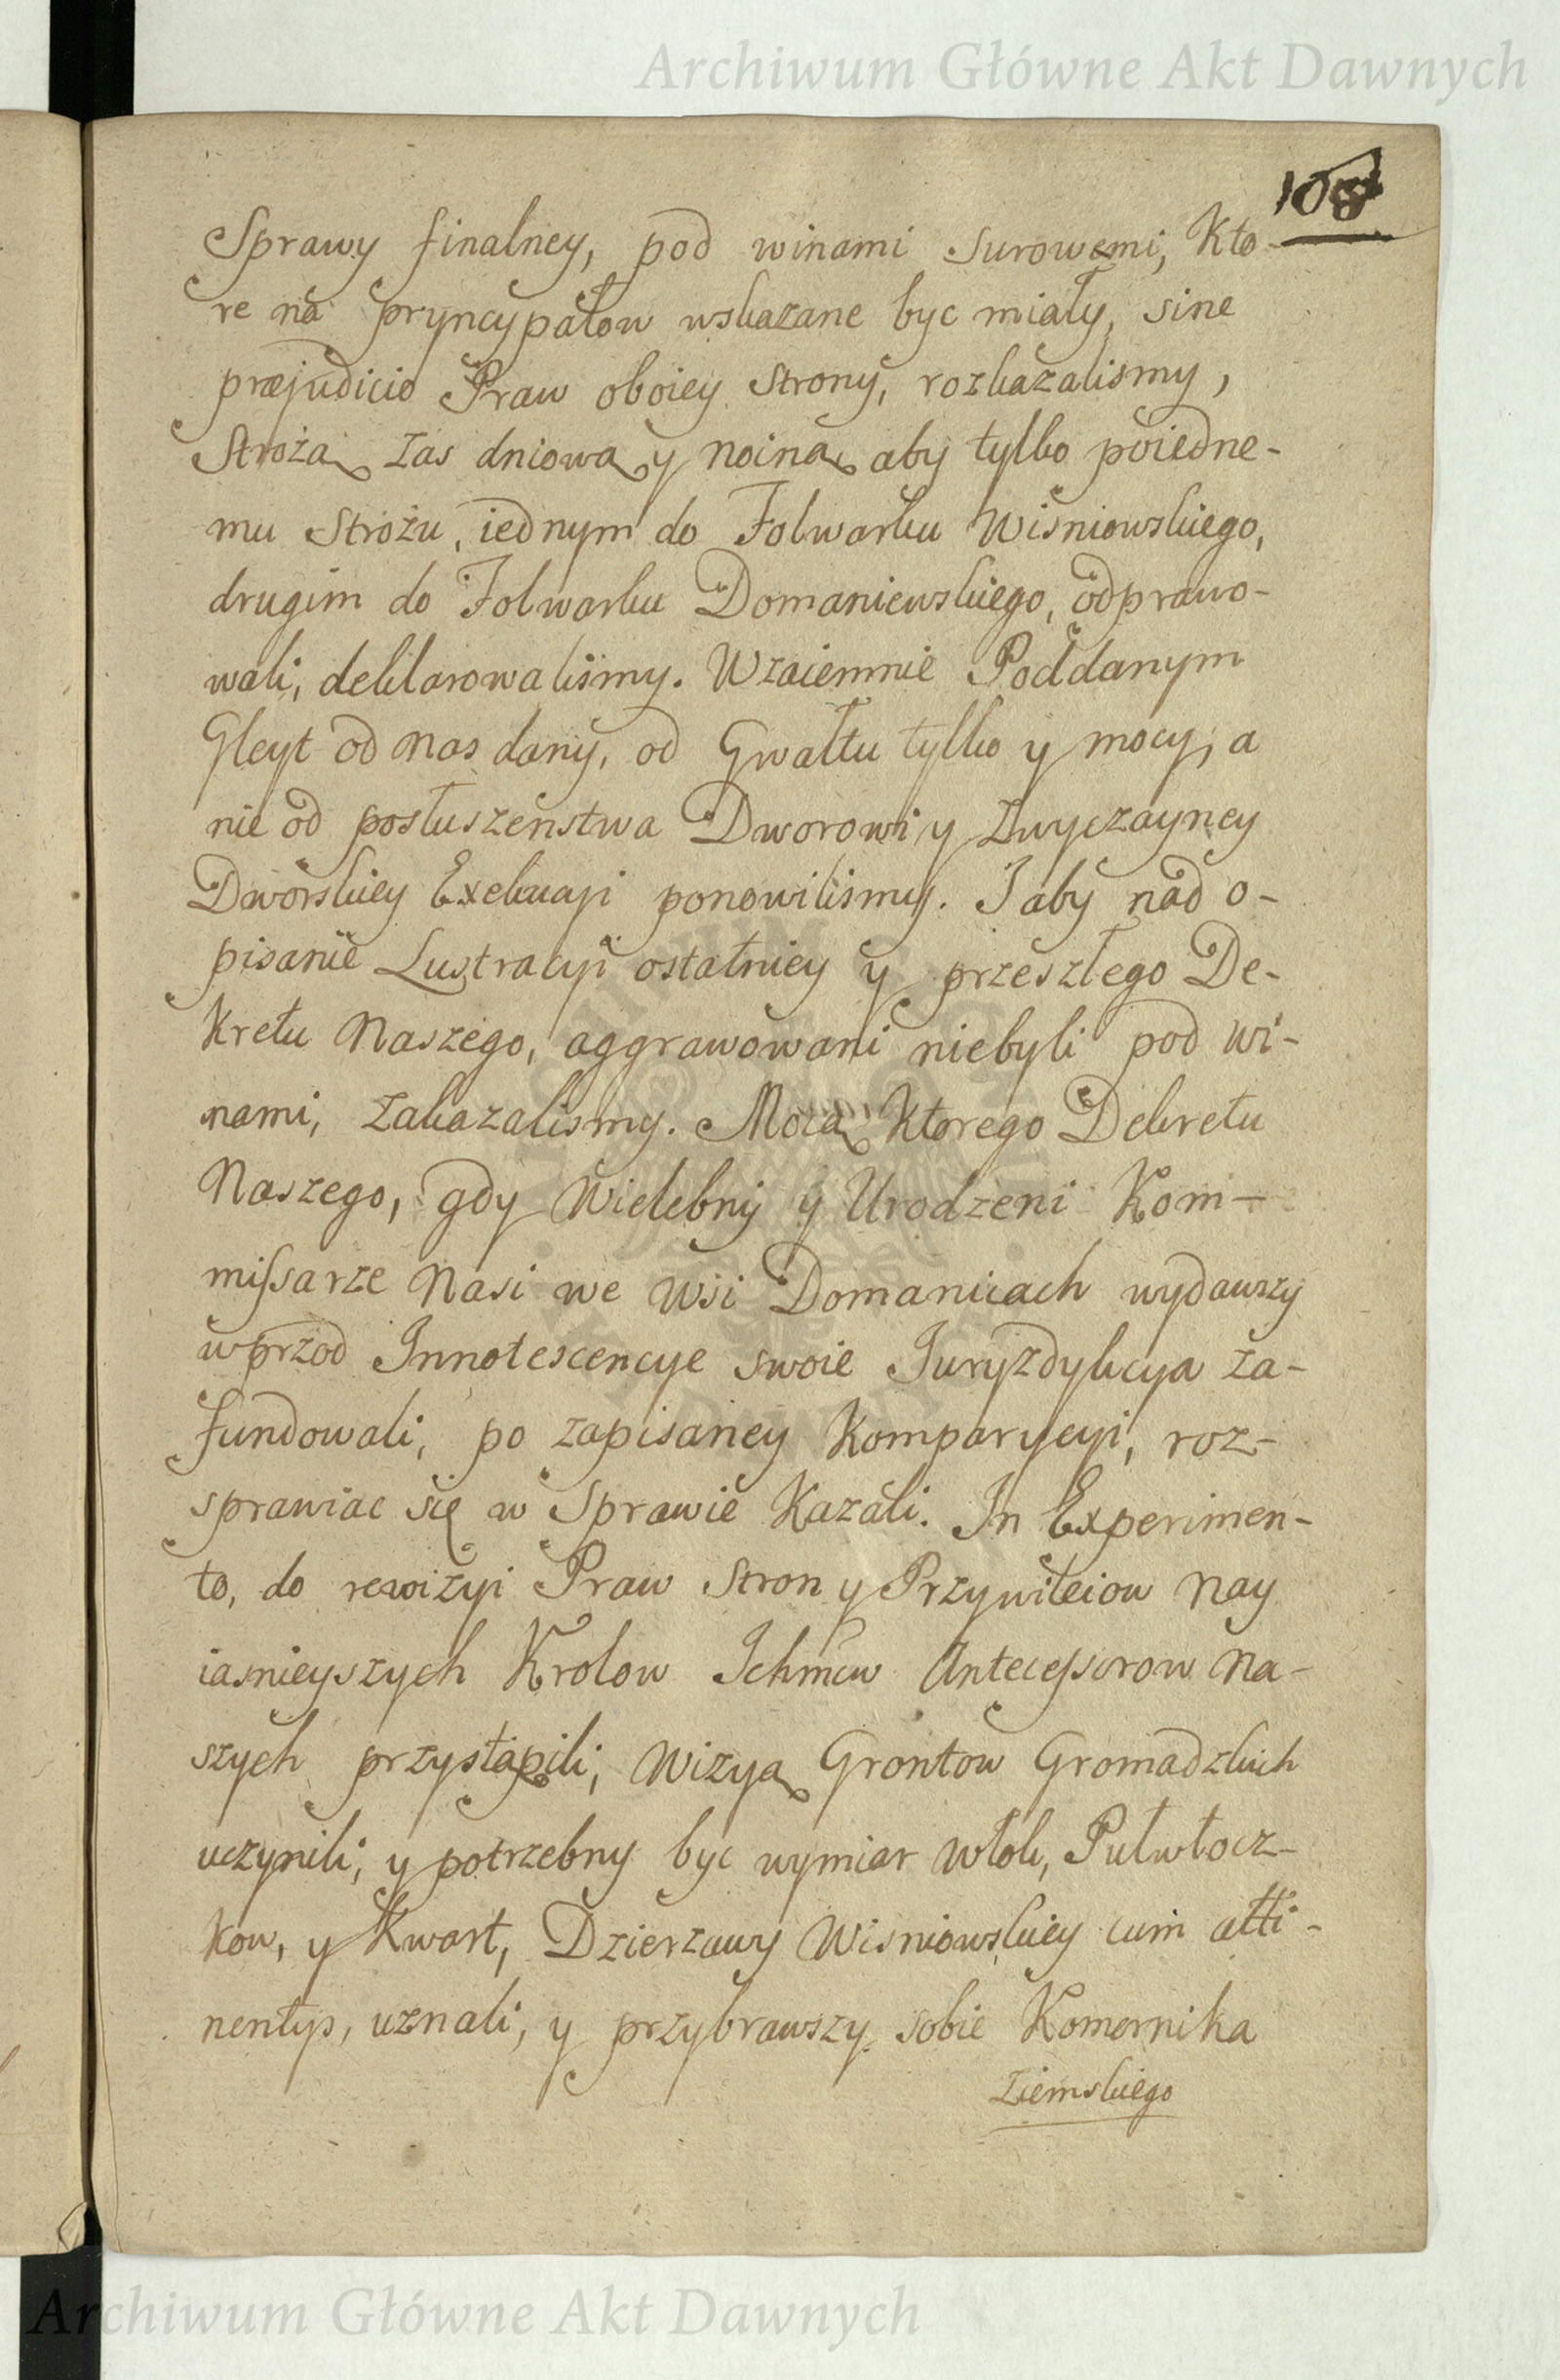 Archiwum Główne Akt Dawnych
Sprawy finalney, pod winami Surowemi, Kto-
re na pryncypałow wskazane byc miały, sine
præjudicio Praw oboiey Strony, rozkazalismy,
Strożą zas dniową y nocną aby tylko poiedne-
mu Strożu, iednym do Folwarku Wisniowskiego,
drugim do Folwarku Domaniewskiego, odprawo-
wali, deklarowalismy. Wzaiemnie Poddanym
Gleyt od nas dany, od Gwałtu tylko y mocy, a
nie od posłuszenstwa Dworowi y Zwyczayney
Dworskiey Exekucyi ponowilismy. I aby nad o-
pisanie Lustracyi ostatniey y przeszłego De-
kretu Naszego, aggrawowani niebyli pod wi-
nami, Zakazalismy. Mocą Ktorego Dekretu
Naszego, gdy Wielebny y Urodzeni Kom-
missarze Nasi we Wsi Domanicach wydawszy
wprzod Innotescencye swoie Juryzdykcyą za-
fundowali, po zapisaney Komparycyi, roz-
sprawiac się w Sprawie Kazali. In Experimen-
to, do rewizyi Praw Stron y Przywileiow Nay
iasnieyszych Krolow Ichmcw Antecessorow Na-
szych przystąpili, Wizyą Grontow Gromadzkich
uczynili, y potrzebny byc wymiar Włok, Pułwłocz-
kow, y Kwart, Dzierzawy Wisniowskiey cum atti-
nentys, uznali, y przybrawszy sobie Komornika
Ziemskiego
Archiwum Główne Akt Dawnych